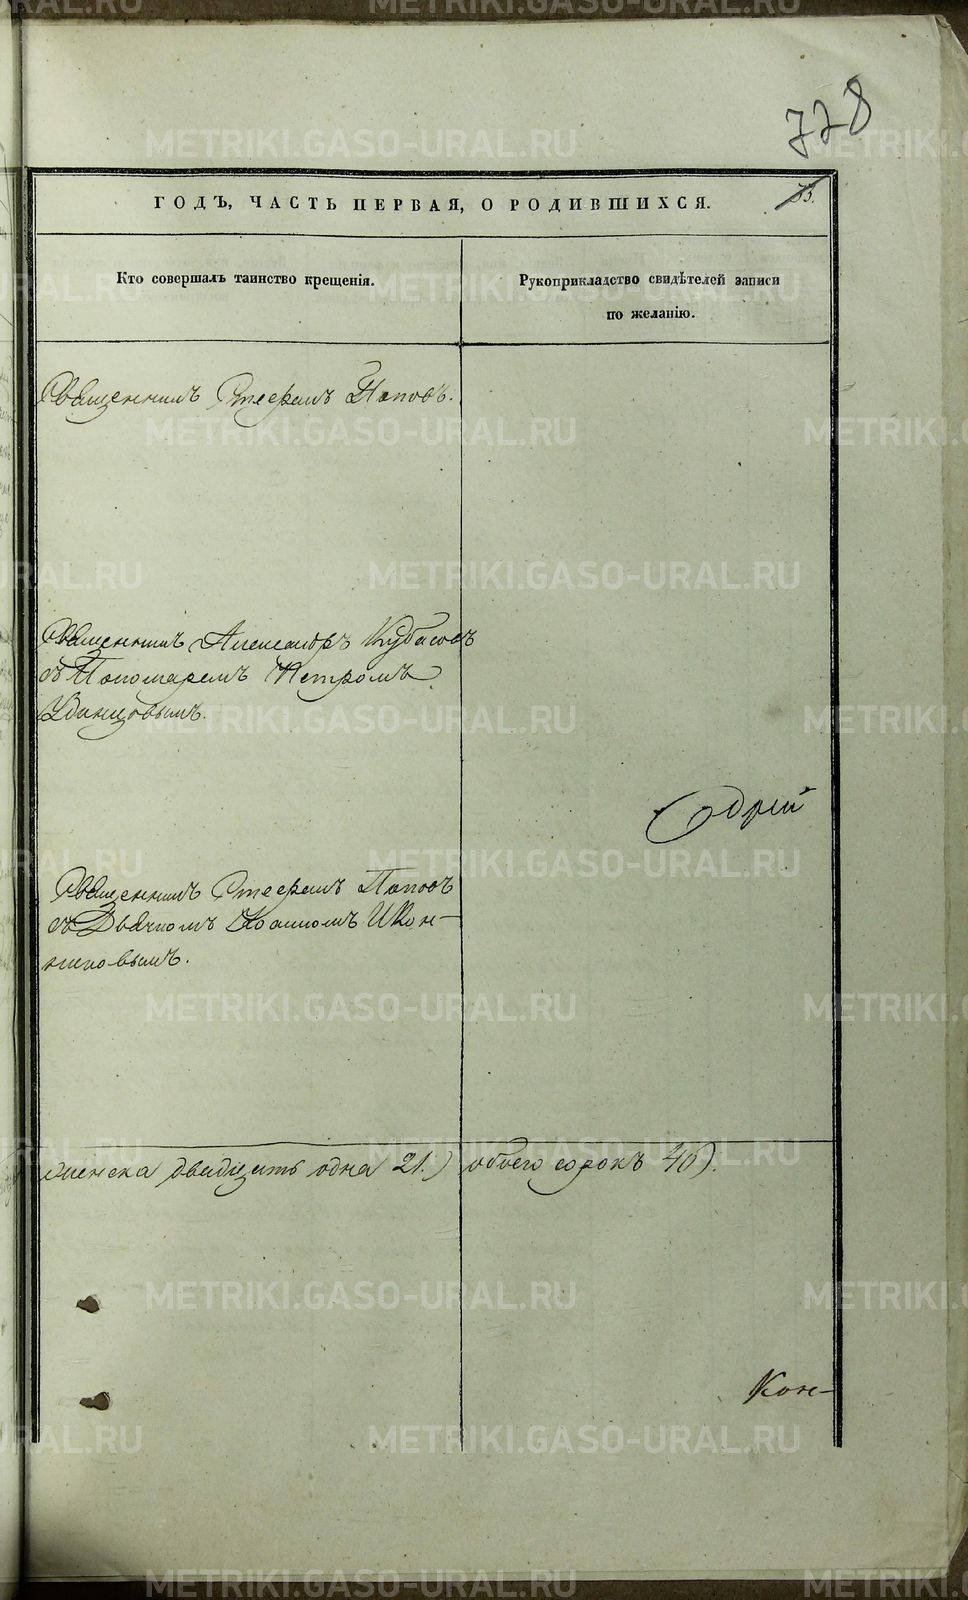 728
73.
ГОДЪ, ЧАСТЬ ПЕРВАЯ, О РОДИВШИХСЯ.
Кто совершалъ таинство крещенія.
Рукоприкладство свидѣтелей записи
по желанію.
Священникъ Стефанъ Поповъ.
Священникъ Александръ Кубасовъ
съ Пономаремъ Петромъ
Удинцовымъ.
Священникъ Стефанъ Поповъ
съ Дьячкомъ Иоанномъ Икон-
никовымъ.
женска двадцать одна 21.) обоего сорокъ 40).
Кон-
METRIKI.GASO-URAL.RU